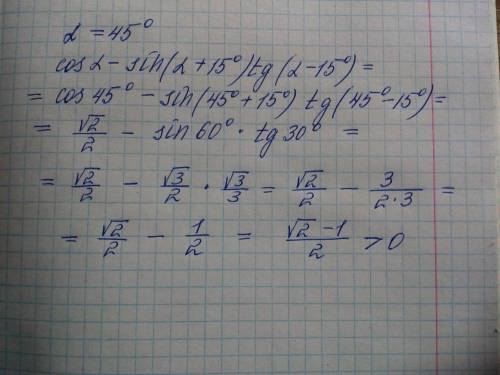 α = 45°
cos α - sin(α + 15°) tg(α - 15°) =
= cos 45° - sin(45° + 15°) tg(45° - 15°) =
= √2/2 - sin 60° · tg 30° =
= √2/2 - √3/2 · √3/3 = √2/2 - 3/(2·3) =
= √2/2 - 1/2 = (√2 - 1)/2 > 0